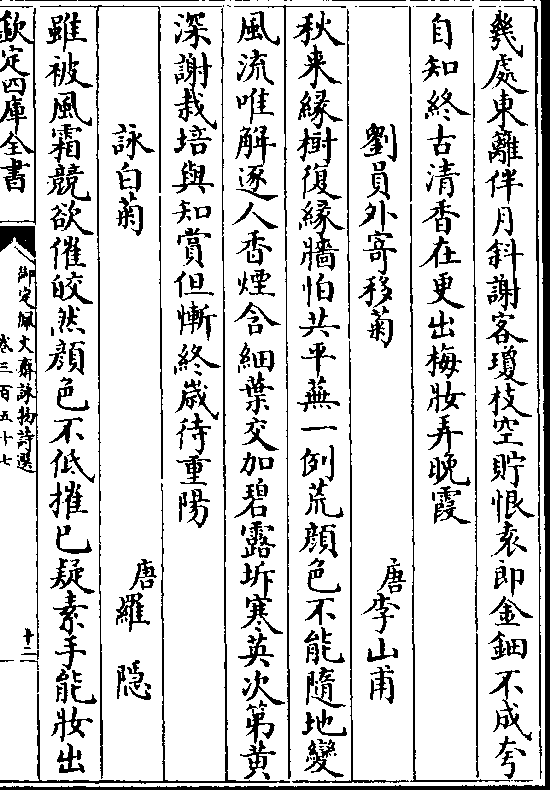 幾處東籬伴月斜謝客瓊枝空貯恨袁郎金鈿不成夸
自知終古清香在更出梅妝弄晚霞
劉員外寄移菊 唐李山甫
秋來緣樹復緣牆怕共平蕪一例荒顔色不能隨地變
風流唯解逐人香煙含細葉交加碧露坼寒英次第黄
深謝栽培與知賞但慚終歲待重陽
詠白菊 唐羅隱
雖被風霜競欲催皎然顔色不低摧已疑素手能妝出
欽定四庫全書
御定佩文齋詠物詩選
卷三百五十七
十二